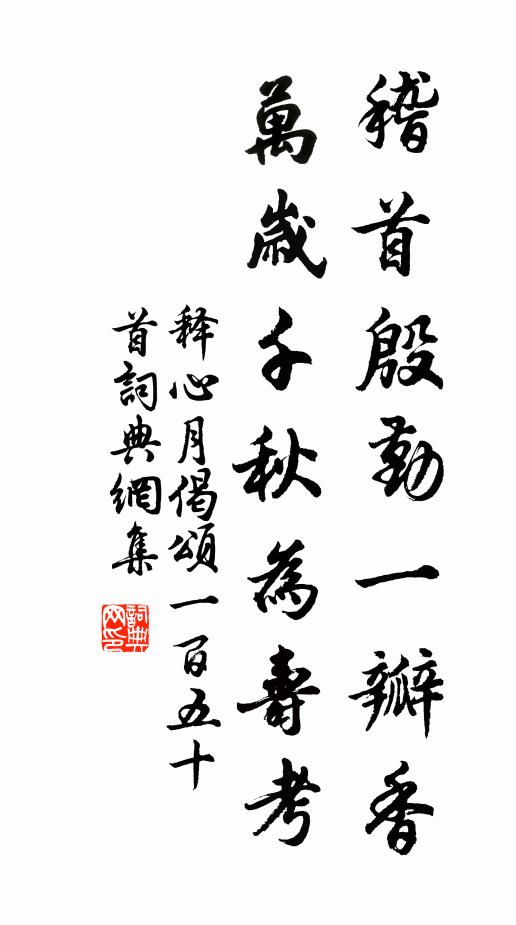 稽首殷勤一瓣香
萬歲千秋為壽考
释心月偈頌一百五十
首詞典網集
詞典網印